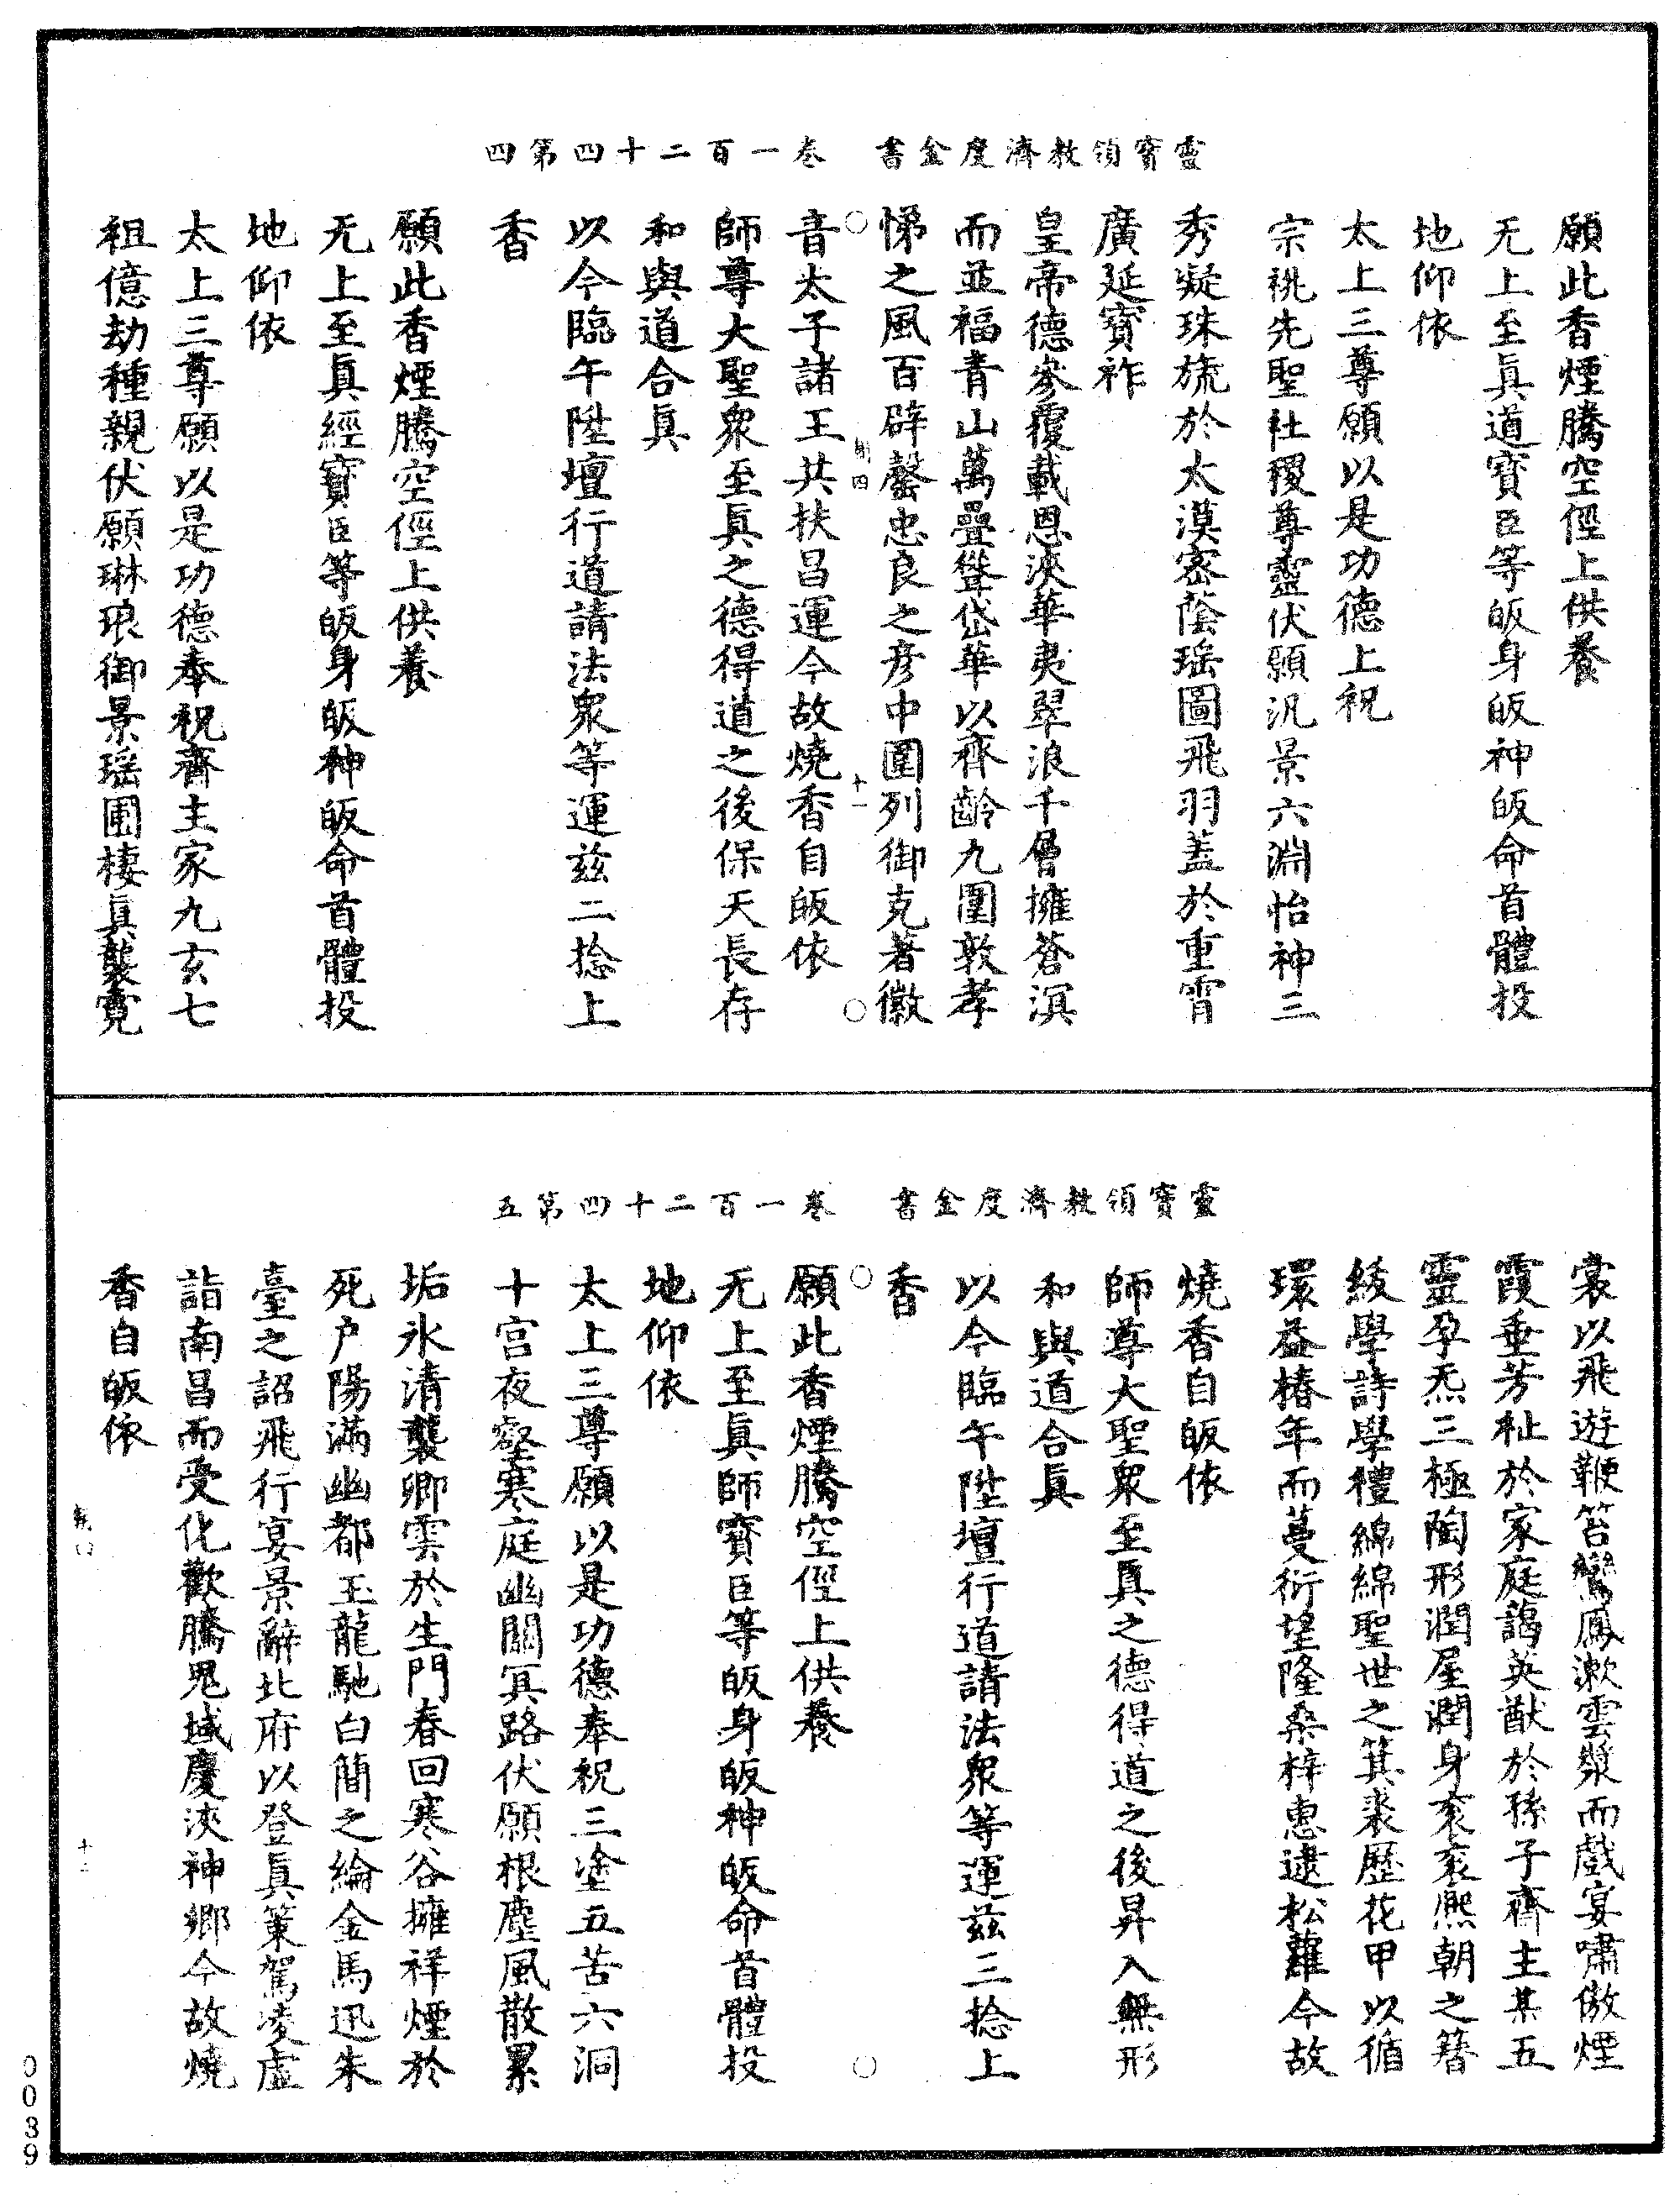 靈寶領教濟度金書　卷一百二十四第四
願此香煙騰空徑上供養
无上至眞道寶臣等皈身皈神皈命首體投
地仰依
太上三尊願以是功德上祝
宗祧先聖社稷尊靈伏願汎景六淵怡神三
秀凝珠旒於太漠密蔭瑶圖飛羽蓋於重霄
廣延寶祚
皇帝德參覆載恩浹華夷翠浪千層擁蒼溟
而並福青山萬疊聳岱華以齊齡九圍敦孝
悌之風百辟罄忠良之彥中圍列御克著徽
音太子諸王共扶昌運今故燒香自皈依
師尊大聖衆至眞之德得道之後保天長存
和與道合眞
以今臨午陞壇行道請法衆等運兹二捻上
香
願此香煙騰空徑上供養
无上至眞經寶臣等皈身皈神皈命首體投
地仰依
太上三尊願以是功德奉祝齊主家九玄七
祖億劫種親伏願琳琅御景瑶圃棲眞襲霓
十一
靈寶領教濟度金書　卷一百二十四第五
裳以飛遊鞭笞鸞鳳漱雲漿而戲宴嘯傲煙
霞垂芳祉於家庭藹英猷於孫子齊主某五
靈孕炁三極陶形潤屋潤身衮衮熙朝之簪
綾學詩學禮綿綿聖世之箕裘歷花甲以循
環益椿年而蔓衍望隆桑梓惠逮松蘿今故
燒香自皈依
師尊大聖衆至眞之德得道之後昇入無形
和與道合眞
以今臨午陞壇行道請法衆等運兹三捻上
香
願此香煙騰空徑上供養
无上至眞師寶臣等皈身皈神皈命首體投
地仰依
太上三尊願以是功德奉祝三塗五苦六洞
十宮夜壑寒庭幽關冥路伏願根塵風散累
垢氷清襲卿雲於生門春回寒谷擁祥煙於
死户陽滿幽都玉龍馳白簡之綸金馬迅朱
臺之詔飛行宴景辭北府以登眞策駕凌虛
詣南昌而受化歡騰鬼域慶浹神鄉今故燒
香自皈依
十二
0039